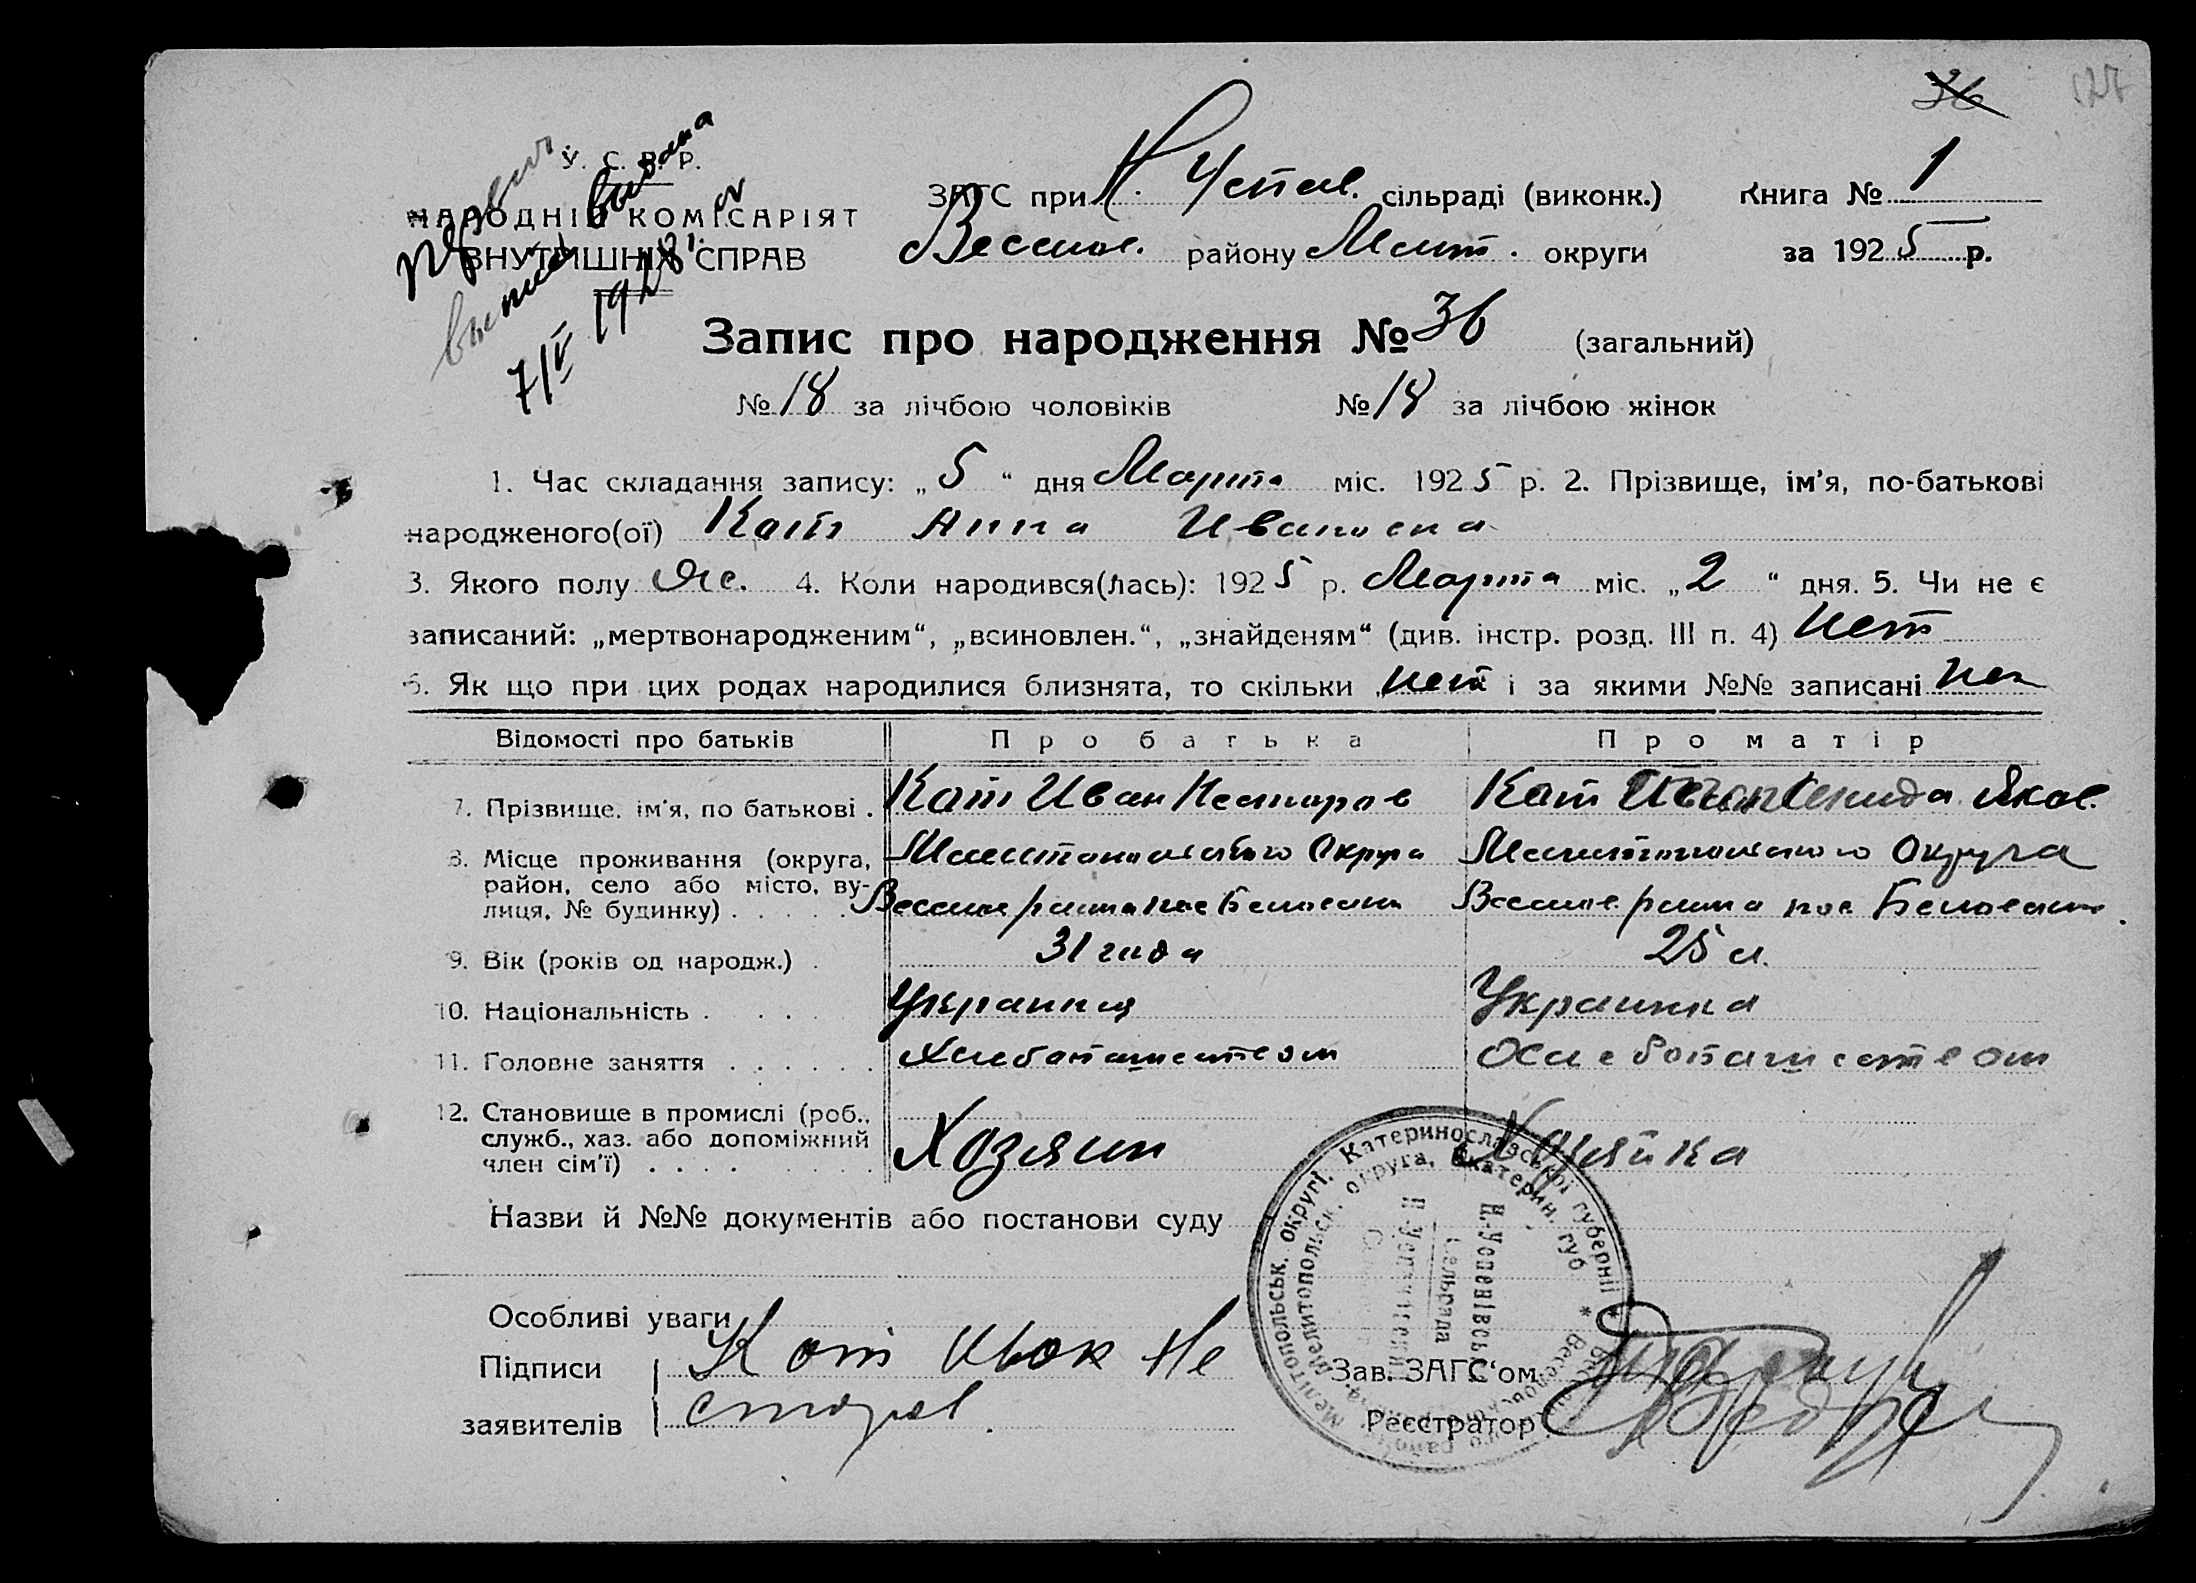 36
У. С. В. Р.
НАРОДНІЙ КОМІСАРІЯТ
ВНУТРІШНІХ СПРАВ
7/V 1928 г
ЗАГС при Н. Успен. сільраді (виконк.) Книга № 1
Весело. району Мелит. округи за 1925 р.
Запис про народження № 36 (загальний)
№ 18 за лічбою чоловіків № 18 за лічбою жінок
1. Час складання запису: „ 5 “ дня Марта міс. 1925 р. 2. Прізвище, ім'я, по-батькові
народженого(ої) Кот Анна Ивановна
3. Якого полу Же. 4. Коли народився(лась): 1925 р. Марта міс. „ 2 “ дня. 5. Чи не є
записаний: „мертвонародженим“, „всиновлен.“, „знайденям“ (див. інстр. розд. III п. 4) Нет
6. Як що при цих родах народилися близнята, то скільки нет і за якими №№ записані нет
Відомості про батьків Про батька Про матір
7. Прізвище, ім'я, по батькові . Кот Иван Несторов Кот Яков.
8. Місце проживання (округа, Мелитопольского Округа Мелитопольского Округа
район, село або місто, ву- Веселое района пос Веселое района пос
лиця, № будинку) . . . . .
9. Вік (років од народж.) . 31 года 25 л.
10. Національність . . . . Украинец Украинка
11. Головне заняття . . . . . . Хлебопашеством Хлебопашеством
12. Становище в промислі (роб.,
служб., хаз. або допоміжний Хозяин Хозяйка
член сім'ї) . . . .
Назви й №№ документів або постанови суду
Особливі уваги
Підписи Кот Иван Не
заявителів сторов
Зав. ЗАГС'ом
Реєстратор
Мелітопольськ. округі, Катеринославської губернії * Мелитопольск. округа, Екатерин. губ.
Н.-Успенівська
Сельрада